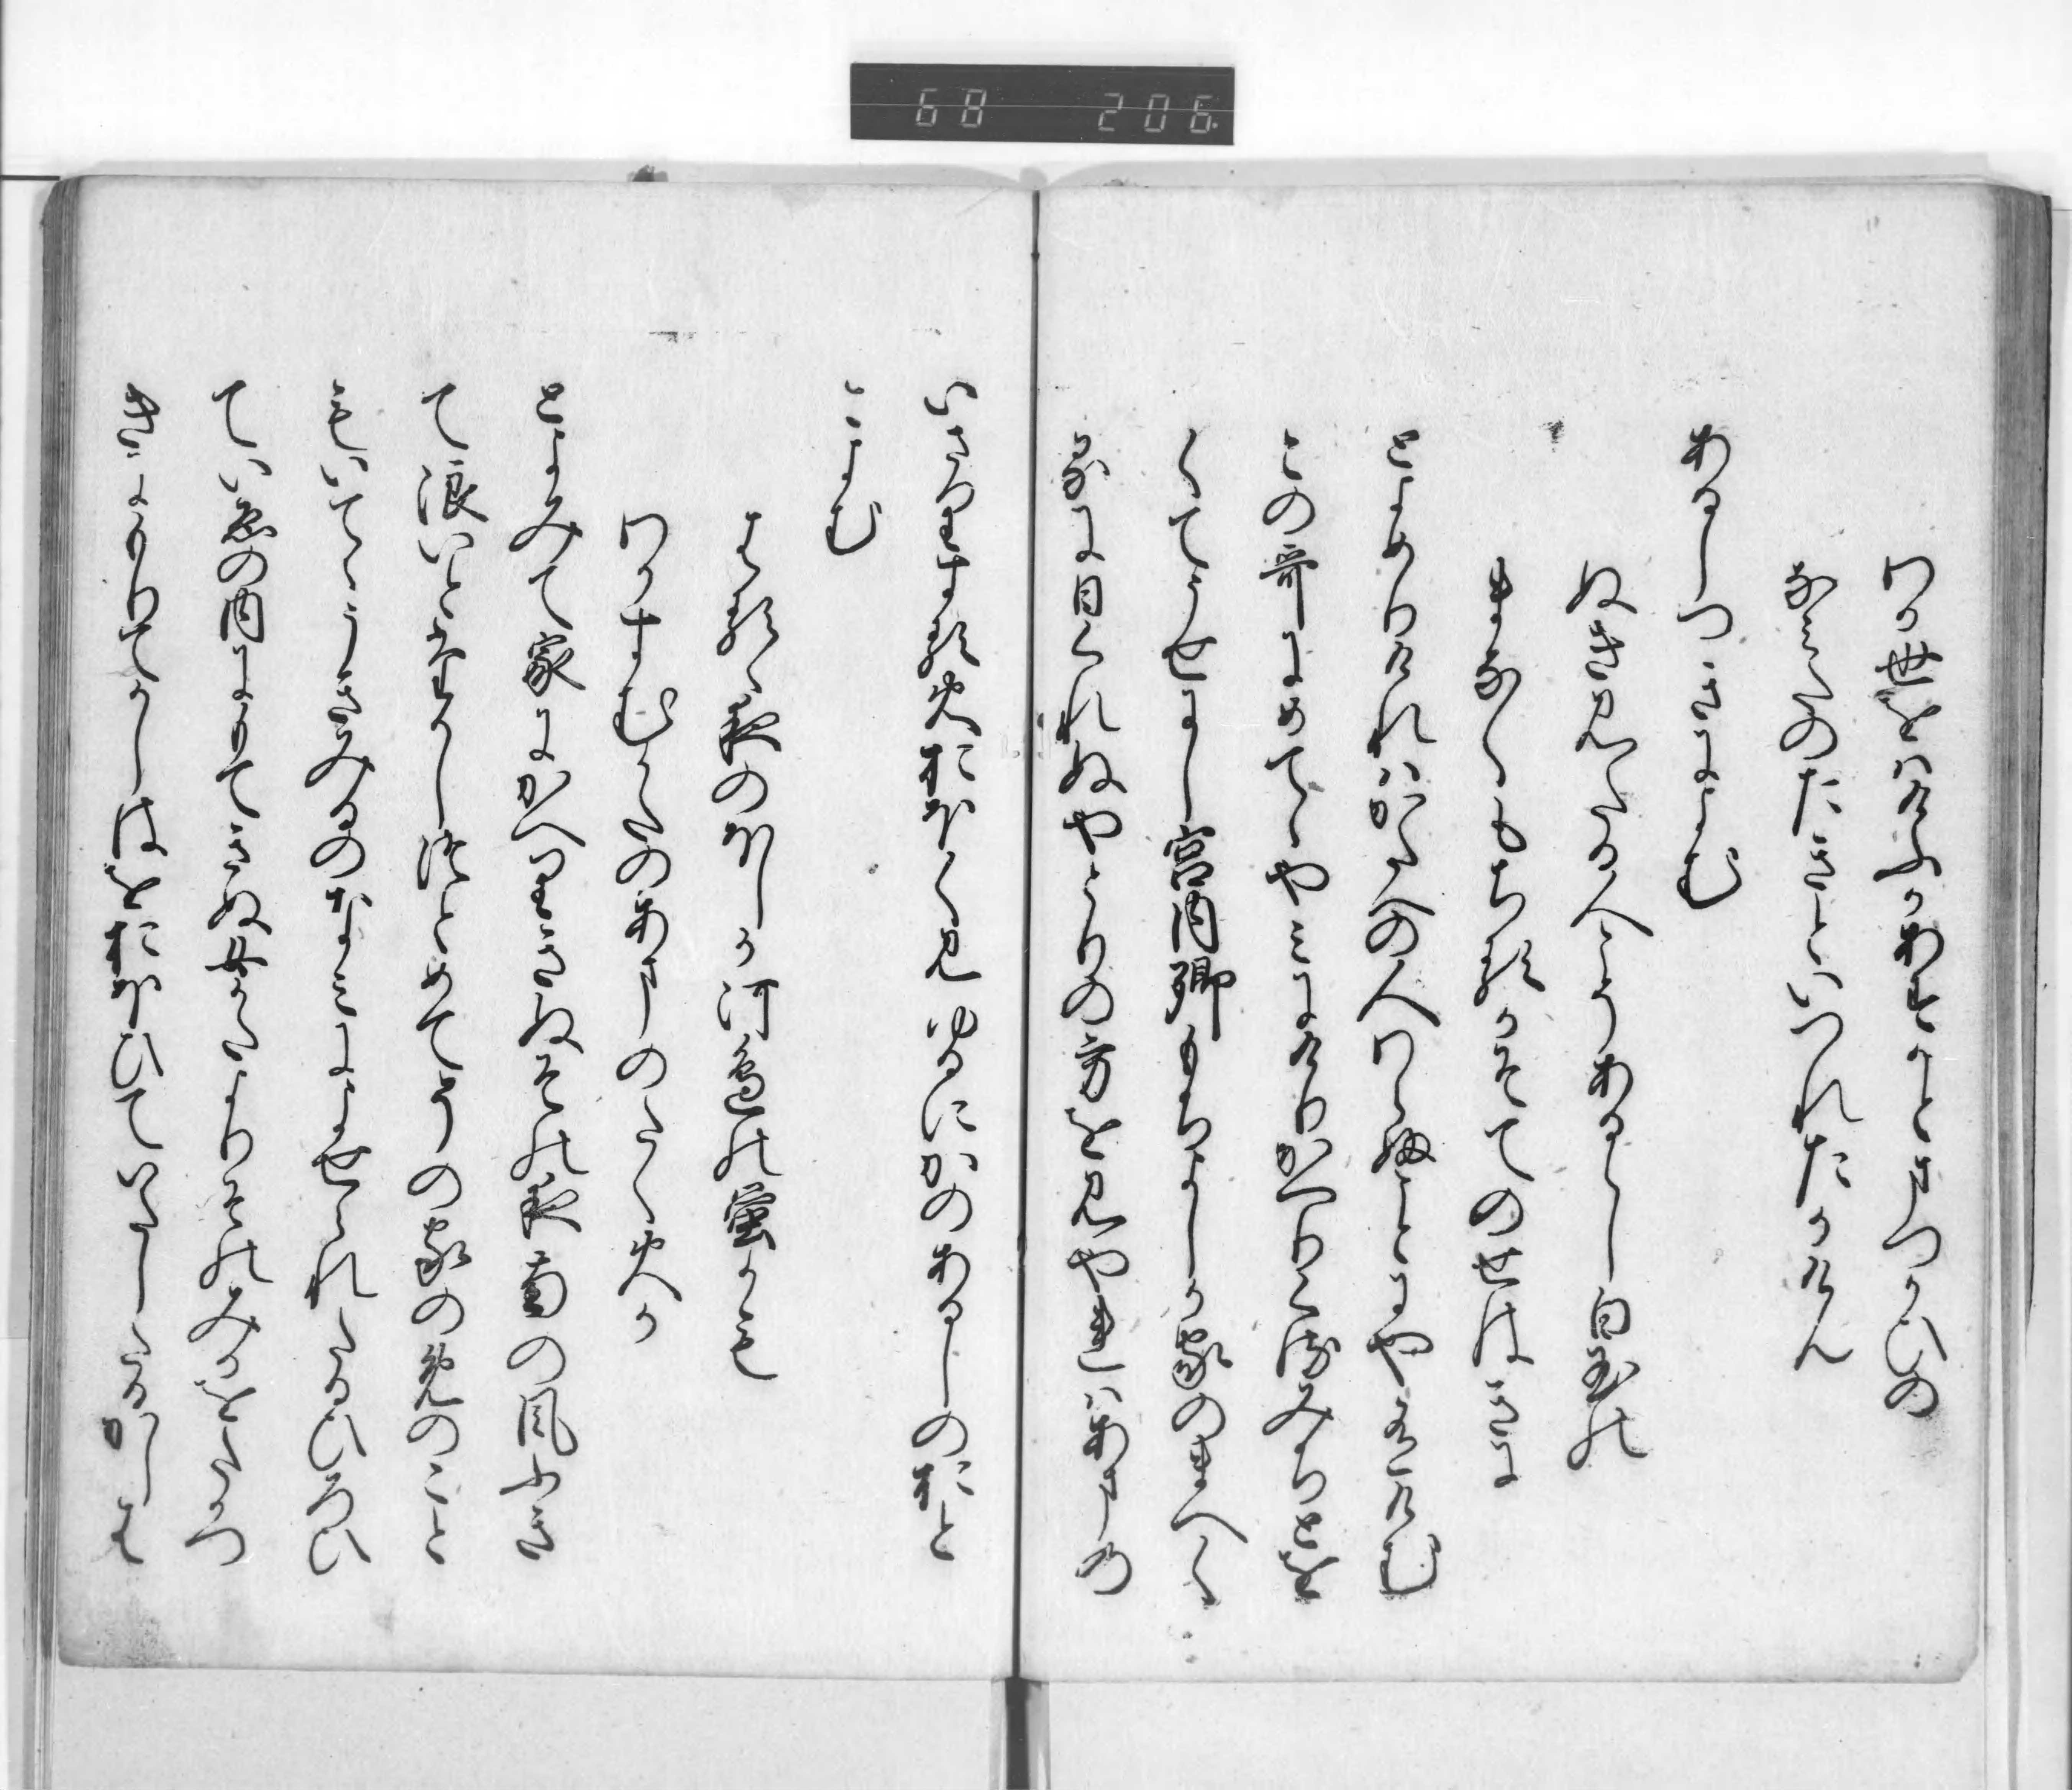 68 206
わか世をはけふかあすかとまつかひの
なみたのたきといつれたかけん
あるしつきによむ
ぬきみたる人こそあるらし白玉の
まなくもちるかそてのせはきに
とよめりけれはかたへの人わらふことにやありけむ
この哥にめてゝやみにけりかへりくるみちとを
くてうせにし宮内卿もちよしか家のまへく
るに日くれぬやとりの方を見やれはあまの
いさりする火おほく見ゆるにかのあるしのおとこ
こよむ
はるゝ夜のほしか河邊の蛍かも
わかすむかたのあまのたく火か
とよみて家にかへりきぬその夜南の風ふき
て浪いとたかしつとめてその家のめのこと
もいてゝうきみるのなみによせられたるひろひ
ていゑの内にもてきぬ女かたよりそのみるをたかつ
きにもりてかしはをおほひていたしたるかしは